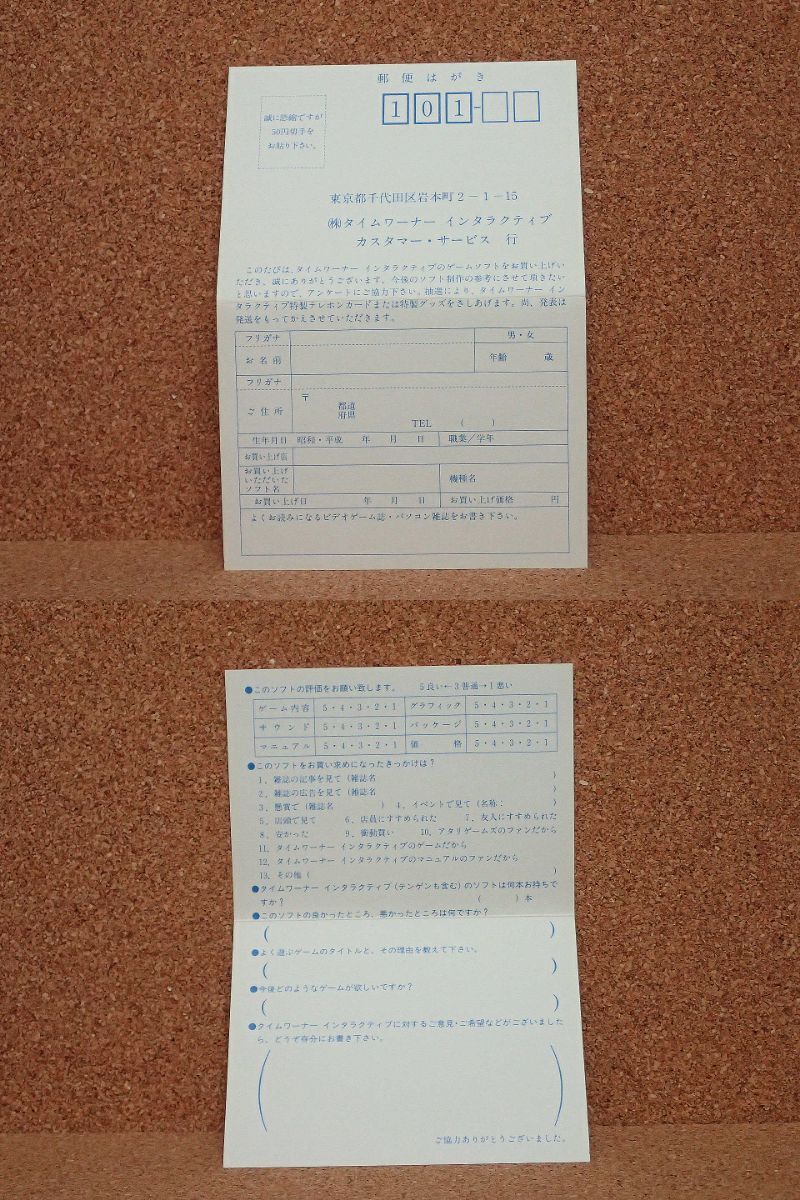 郵便はがき
誠に恐縮ですが
50円切手を
お貼り下さい。
101-
東京都千代田区岩本町2-1-15
㈱タイムワーナー インタラクティブ
カスタマー・サービス 行
このたびは、タイムワーナー インタラクティブのゲームソフトをお買い上げい
ただき、誠にありがとうございます。今後のソフト制作の参考にさせて頂きたい
と思いますので、アンケートにご協力下さい。抽選により、タイムワーナー イン
タラクティブ特製テレホンカードまたは特製グッズをさしあげます。尚、発表は
発送をもってかえさせていただきます。
フリガナ 男・女
お名前 年齢 歳
フリガナ
ご住所 〒 都道府県
TEL ( )
生年月日 昭和・平成 年 月 日 職業/学年
お買い上げ店
お買い上げ
いただいた
ソフト名
機種名
お買い上げ日 年 月 日 お買い上げ価格 円
よくお読みになるビデオゲーム誌・パソコン雑誌をお書き下さい。
●このソフトの評価をお願い致します。 5良い←3普通→1悪い
ゲーム内容 5・4・3・2・1 グラフィック 5・4・3・2・1
サウンド 5・4・3・2・1 パッケージ 5・4・3・2・1
マニュアル 5・4・3・2・1 価格 5・4・3・2・1
●このソフトをお買い求めになったきっかけは?
1、雑誌の記事を見て(雑誌名 )
2、雑誌の広告を見て(雑誌名 )
3、懸賞で(雑誌名 ) 4、イベントで見て(名称: )
5、店頭で見て 6、店員にすすめられた 7、友人にすすめられた
8、安かった 9、衝動買い 10、アタリゲームズのファンだから
11、タイムワーナー インタラクティブのゲームだから
12、タイムワーナー インタラクティブのマニュアルのファンだから
13、その他( )
●タイムワーナー インタラクティブ(テンゲンも含む)のソフトは何本お持ちで
すか? ( )本
●このソフトの良かったところ、悪かったところは何ですか?
( )
●よく遊ぶゲームのタイトルと、その理由を教えて下さい。
( )
●今後どのようなゲームが欲しいですか?
( )
●タイムワーナー インタラクティブに対するご意見・ご希望などがございました
ら、どうぞ存分にお書き下さい。
( )
ご協力ありがとうございました。